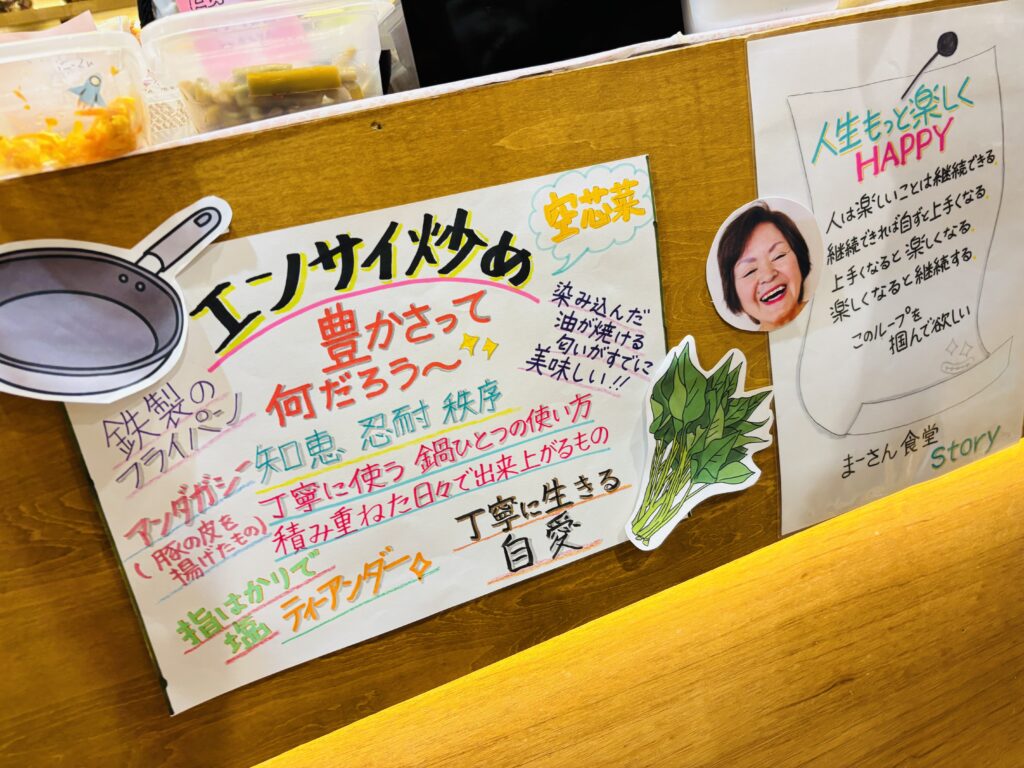 エンサイ炒め
空芯菜
豊かさって
何だろう〜
染み込んだ
油が焼ける
匂いがすでに
美味しい!!
鉄製の
フライパン
知恵 忍耐 秩序
丁寧に使う 鍋ひとつの使い方
積み重ねた日々で出来上がるもの
アンダガシー
(豚の皮を
揚げたもの)
丁寧に生きる
自愛
指はかりで
塩
ティーアンダー
人生もっと楽しく
HAPPY
人は楽しいことは継続できる
継続できれば自ずと上手くなる
上手くなると楽しくなる
楽しくなると継続する
このループを
掴んで欲しい
まーさん食堂
Story